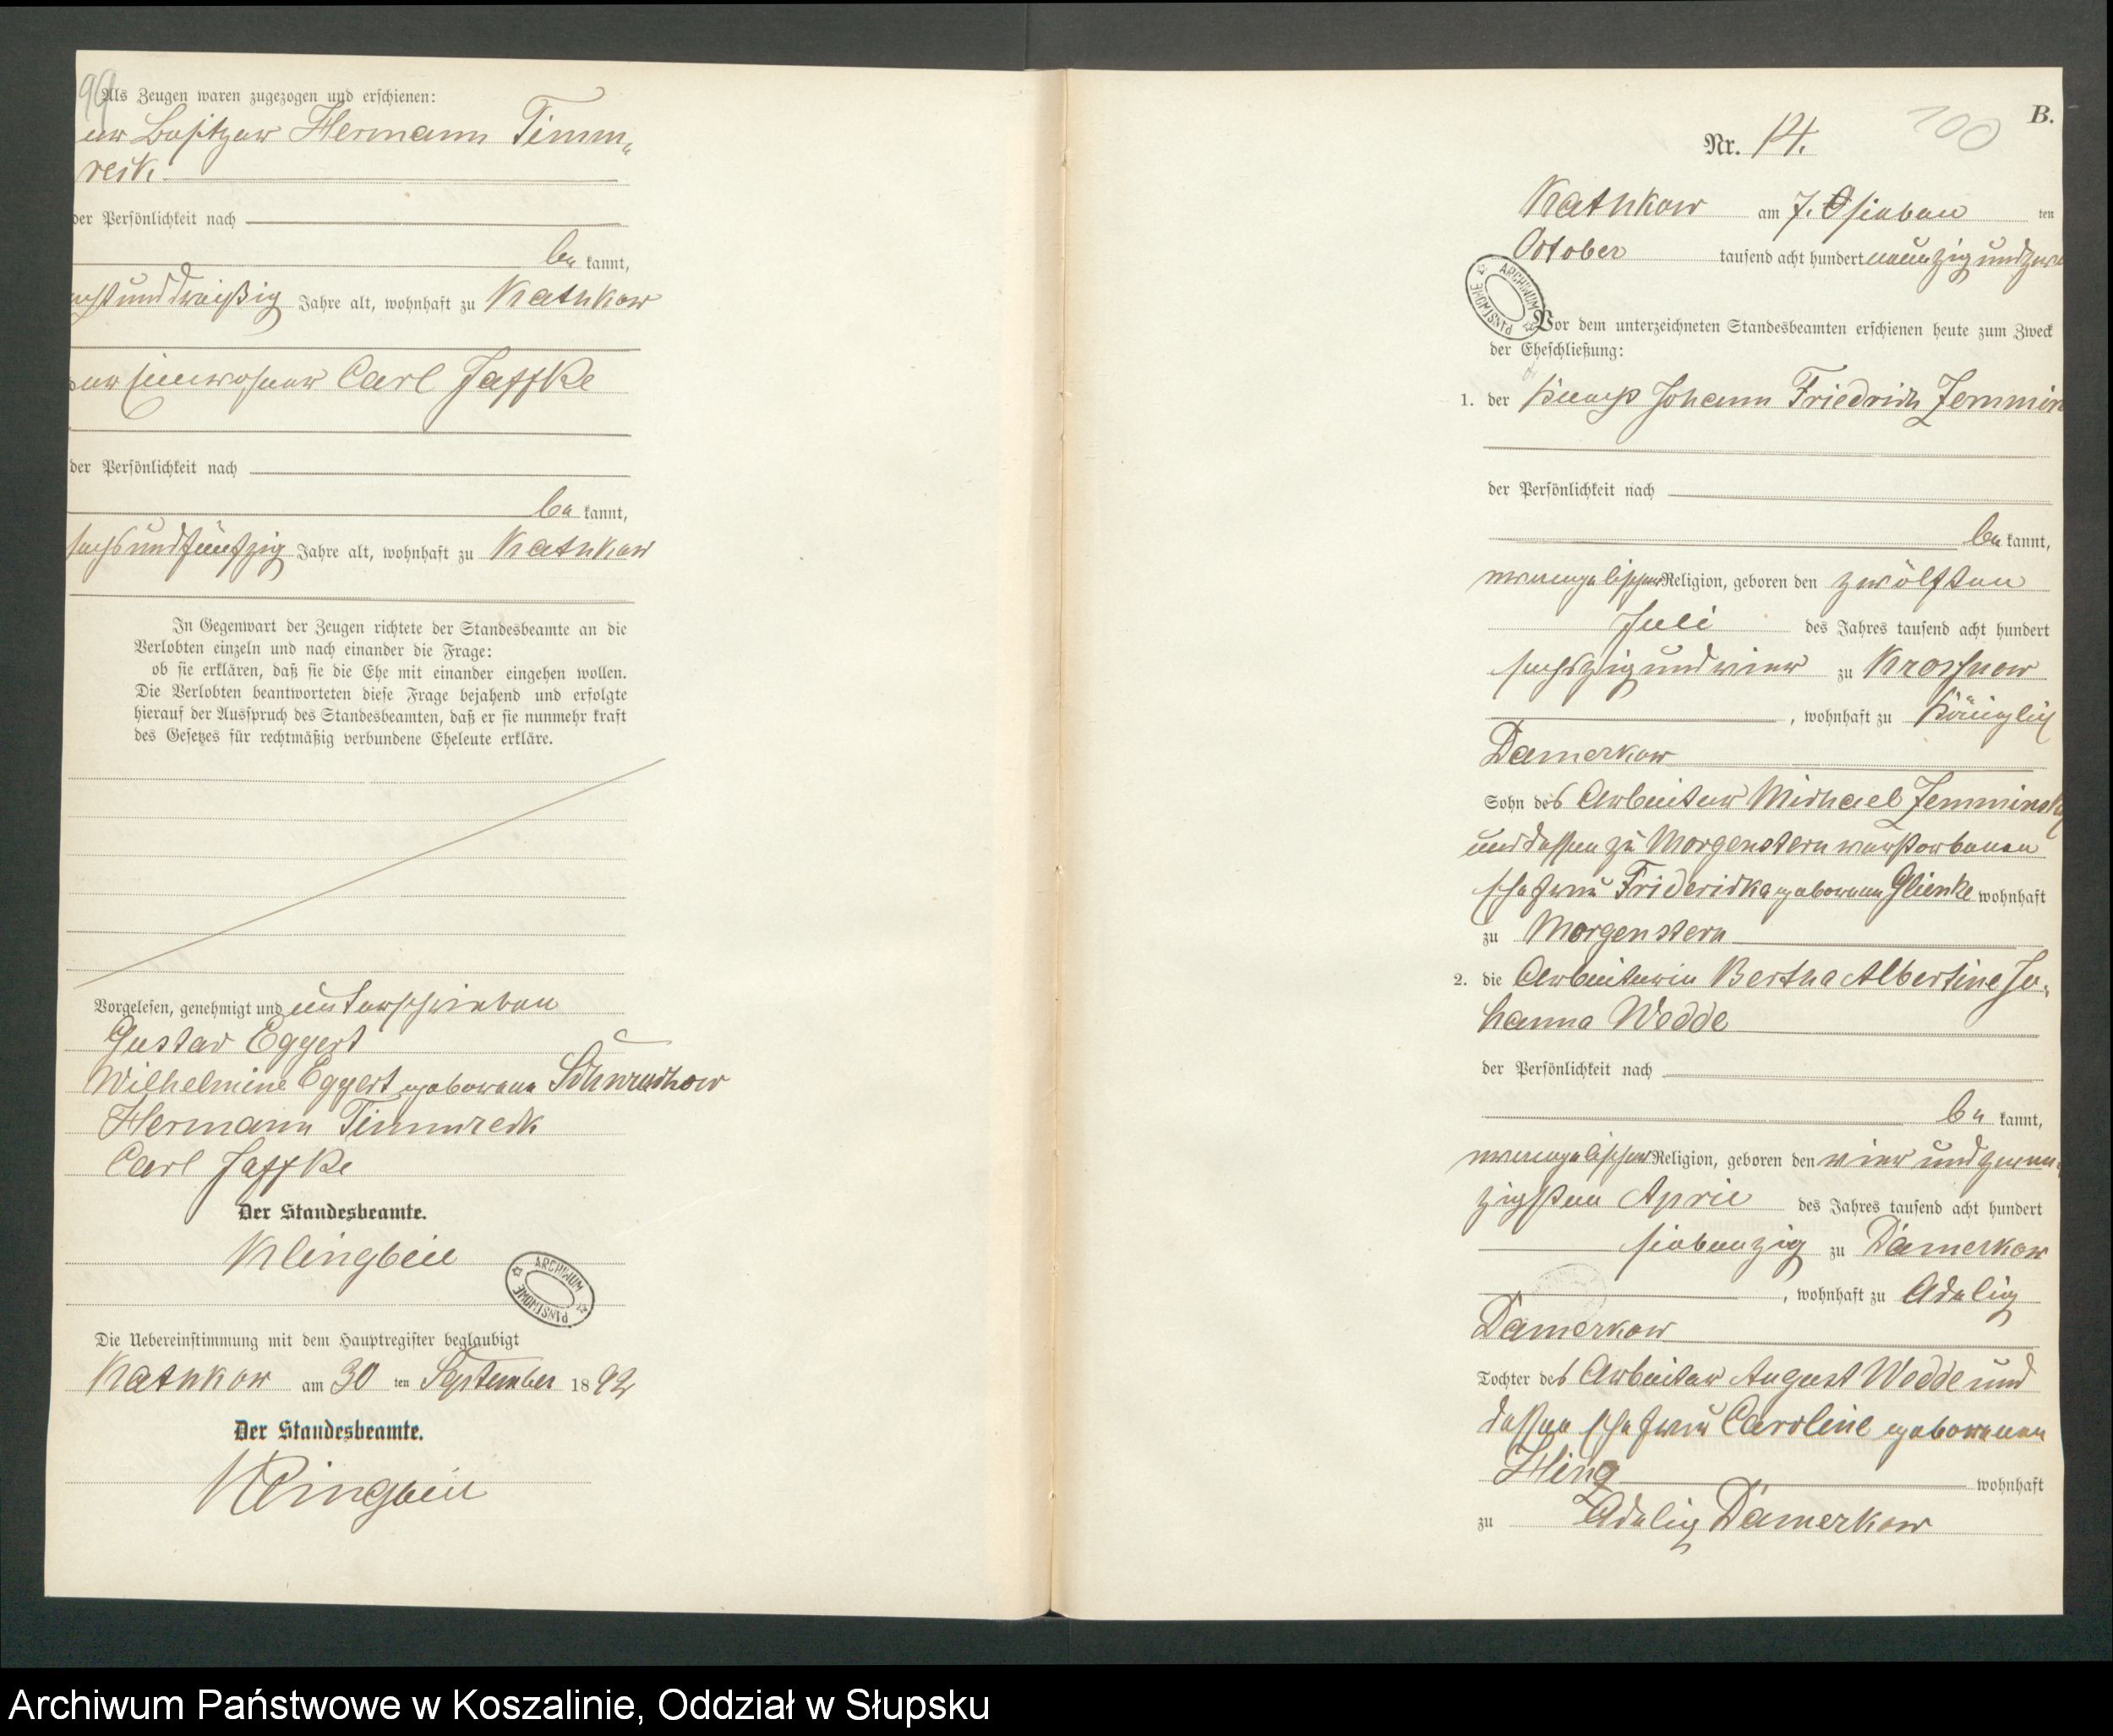 99
Als Zeugen waren zugezogen und erschienen:
er Besitzer Hermann Timm„
reck.
der Persönlichkeit nach
be kannt,
achtunddreißig Jahre alt, wohnhaft zu Kathkow
der Einwohner Carl Jaffke
der Persönlichkeit nach
be kannt,
sechsundfünfzig Jahre alt, wohnhaft zu Kathkow
In Gegenwart der Zeugen richtete der Standesbeamte an die
Verlobten einzeln und nach einander die Frage:
ob sie erklären, daß sie die Ehe mit einander eingehen wollen.
Die Verlobten beantworteten diese Frage bejahend und erfolgte
hierauf der Ausspruch des Standesbeamten, daß er sie nunmehr kraft
des Gesetzes für rechtmäßig verbundene Eheleute erkläre.
Vorgelesen, genehmigt und unterschrieben
Gustav Eggert
Wilhelmine Eggert geborene
Hermann Timmreck
Carl Jaffke
Der Standesbeamte.
Klingbeil
ARCHIWUM PAŃSTWOWE
Die Uebereinstimmung mit dem Hauptregister beglaubigt
Kathkow am 30 ten September 1892
Der Standesbeamte.
Klingbeil
B.
100
Nr. 14.
Kathkow am 7. sieben ten
October tausend acht hundert neunzig und zwe
ARCHIWUM PAŃSTWOWE
Vor dem unterzeichneten Standesbeamten erschienen heute zum Zweck
der Eheschließung:
1. der Knecht Johann Friedrich Zemmin
der Persönlichkeit nach
be kannt,
evangelischer Religion, geboren den zwölften
Juli des Jahres tausend acht hundert
sechszig und vier zu Krossnow
, wohnhaft zu Königlich
Damerkow
Sohn des Arbeiter Michael Zemminsky
und dessen zu Morgenstern verstorbenen
Ehefrau Fridericka geborenen Glienke wohnhaft
zu Morgenstern
2. die Arbeiterin Bertha Albertine Jo„
hanna Wedde
der Persönlichkeit nach
be kannt,
evangelischer Religion, geboren den vier und zwan„
zigsten April des Jahres tausend acht hundert
siebenzig zu Damerkow
, wohnhaft zu Adelig
Damerkow
Tochter des Arbeiter August Wedde und
dessen Ehefrau Caroline geborenen
Hing wohnhaft
zu Adelig Damerkow
Archiwum Państwowe w Koszalinie, Oddział w Słupsku